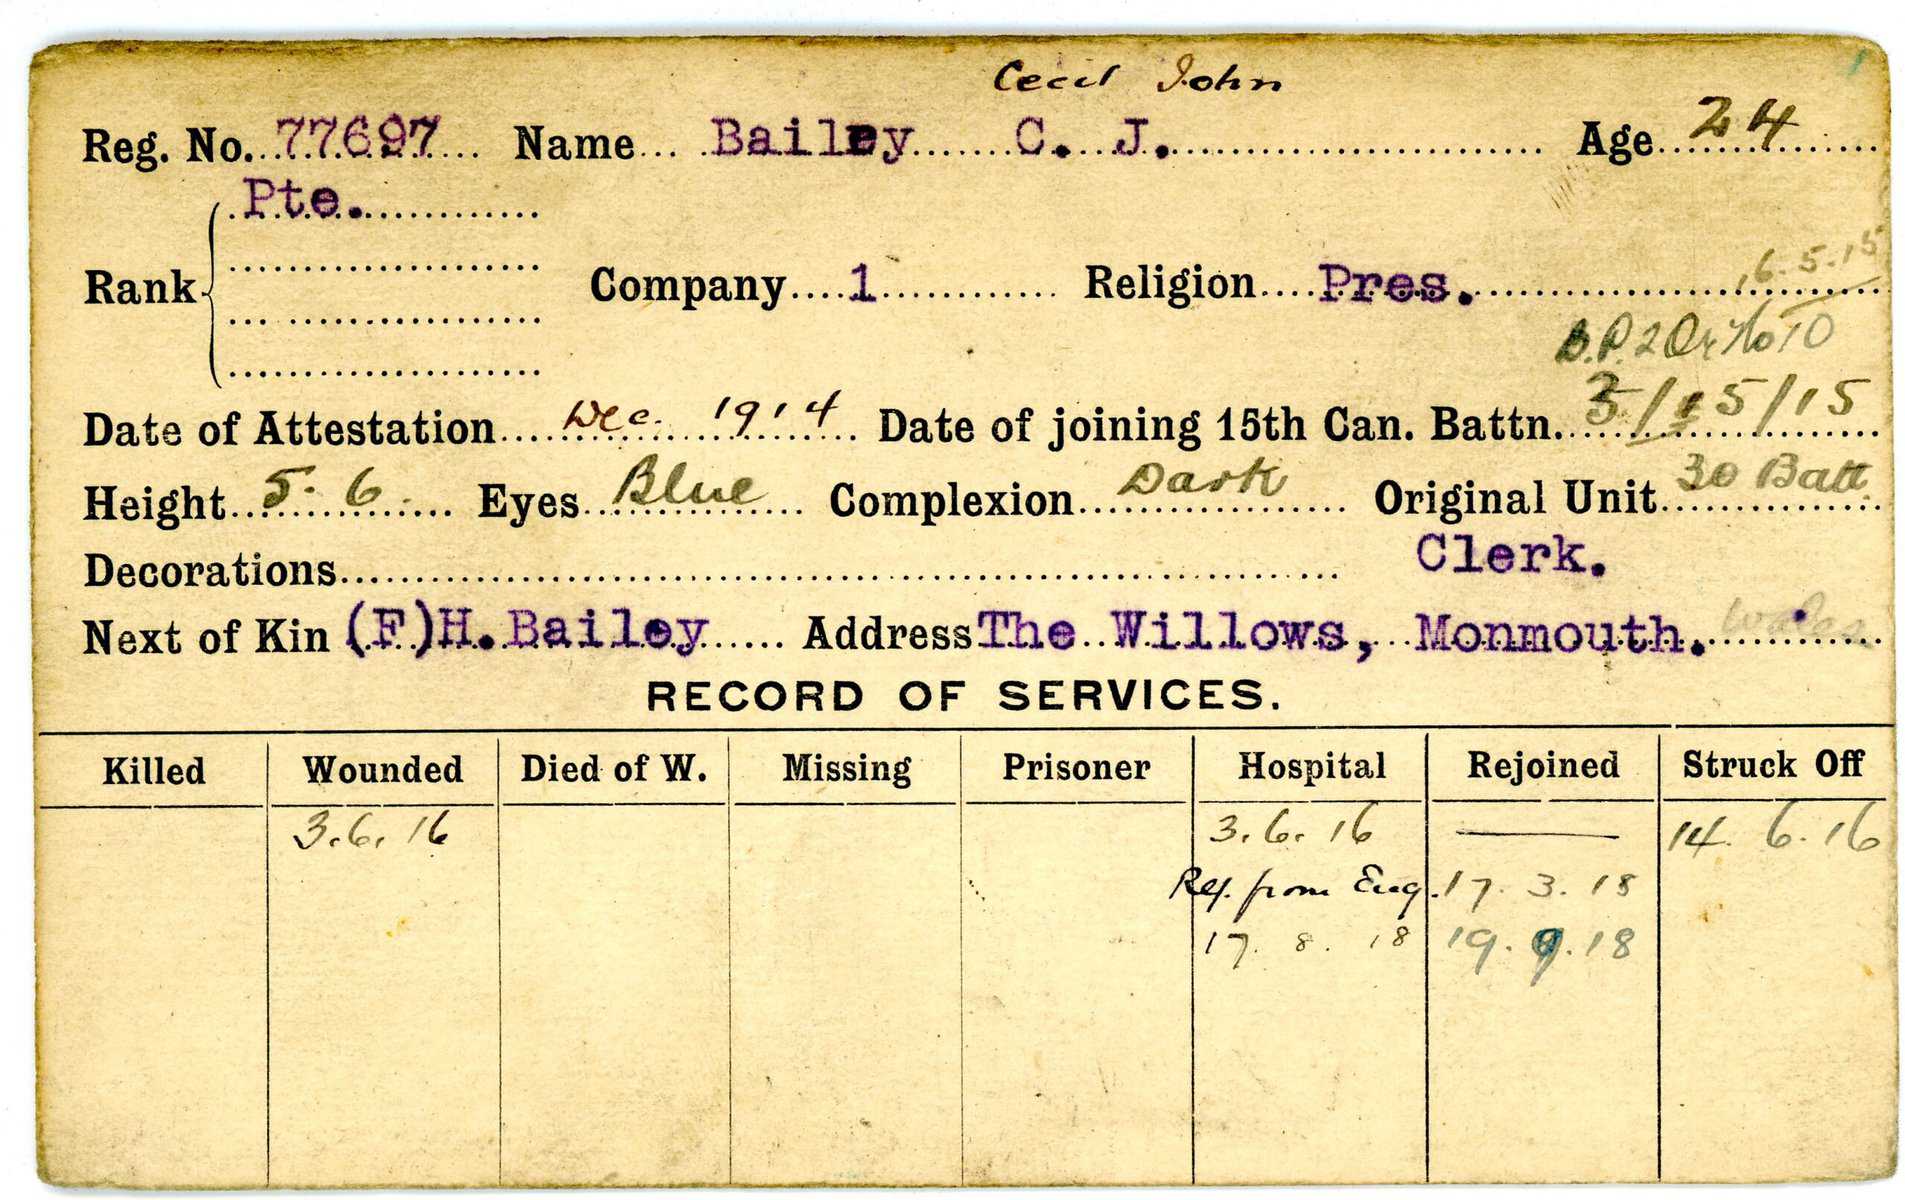 Cecil John
Reg. No. 77697 Name Bailey C. J. Age 24
Pte.
Rank Company 1 Religion Pres. 6.5.15
B.P.2 Or No 10
Date of Attestation Dec. 1914 Date of joining 15th Can. Battn. 5/15
Height 5. 6. Eyes Blue Complexion Dark Original Unit 30 Batt.
Decorations Clerk.
Next of Kin (F)H. Bailey Address The Willows, Monmouth. Wales
RECORD OF SERVICES.
Killed Wounded Died of W. Missing Prisoner Hospital Rejoined Struck Off
3.6.16 3.6.16 14.6.16
Rej. from Eng. 17.3.18
17.8.18 19.9.18